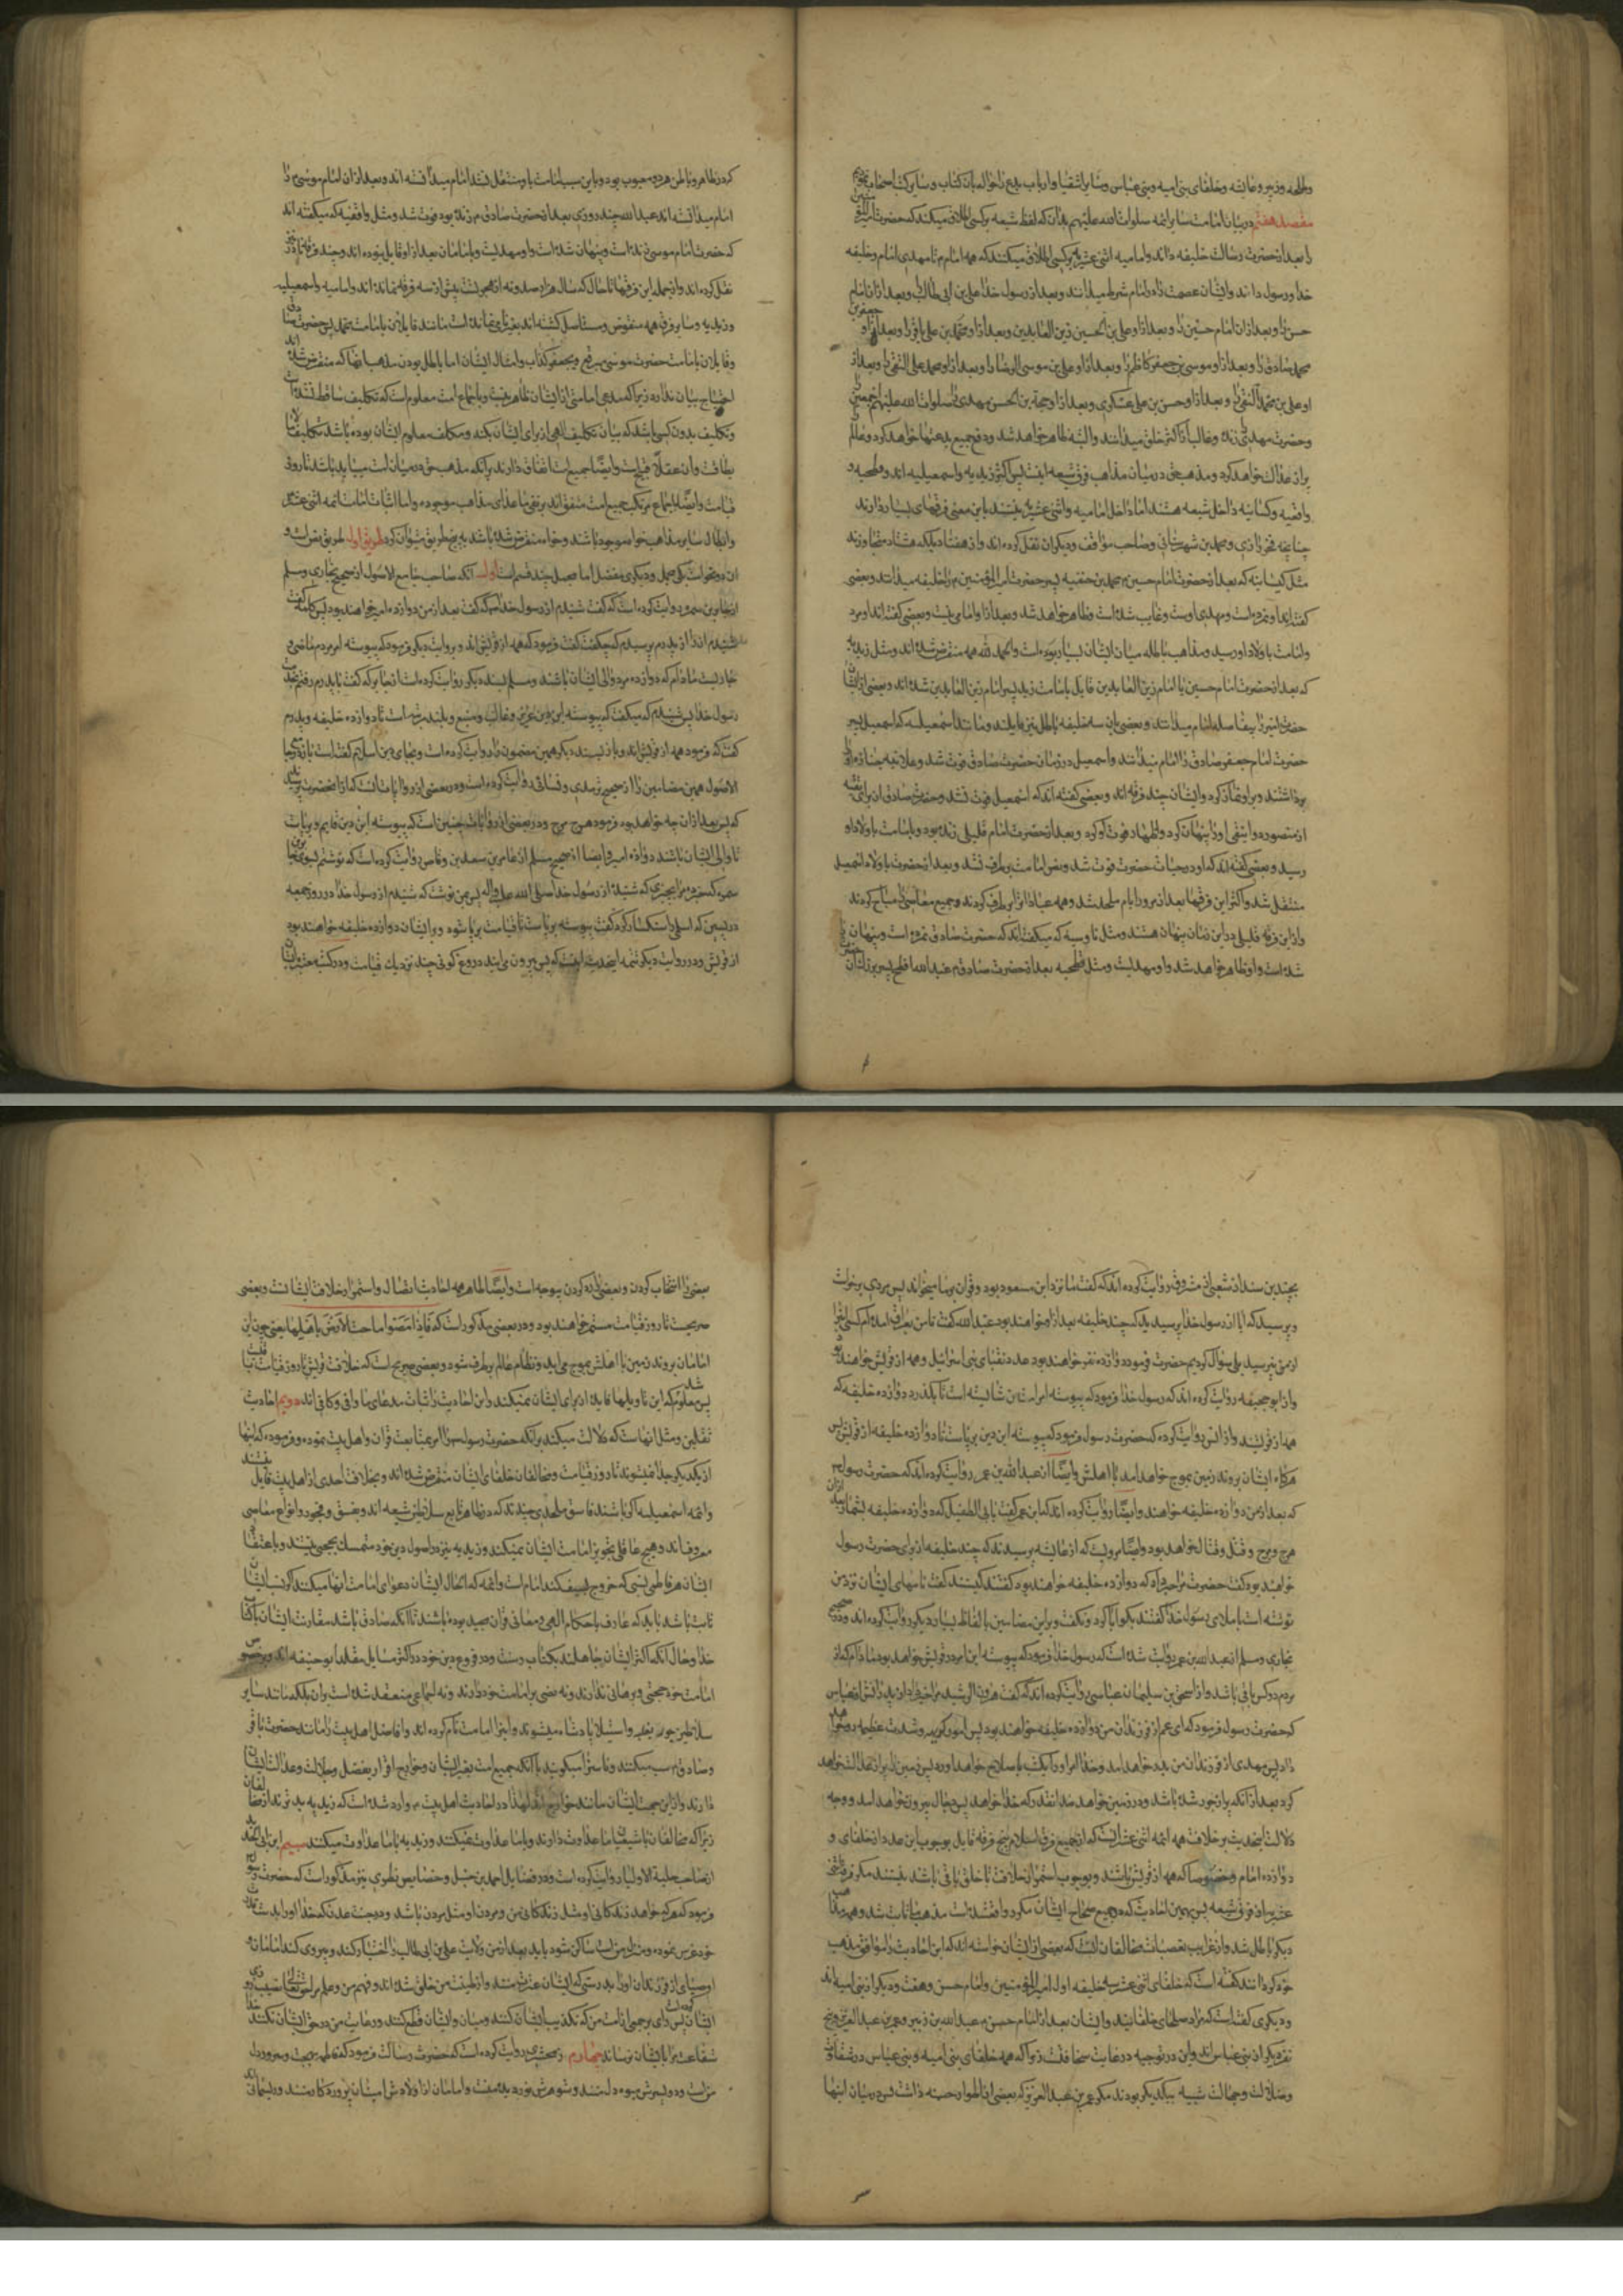 وطلحه وزبیر وعایشه وخلفای بنی امیه وبنی عباس وسایر اشقیا وارباب بدع را حواله بان کتاب وسایر کتب اصحاب
مقصد هفتم در بیان امامت سایر ائمه صلوات الله علیهم بدان که لفظ شیعه بر کسی اطلاق میکنند که حضرت امیر
را بعد از حضرت رسالت خلیفه داند وامامیه اثنی عشریه بر کسی اطلاق میکنند که همه امام را تا مهدی امام وخلیفه
خدا ورسول داند وایشان عصمت را در امام شرط میدانند وبعد از رسول خدا علی بن ابی طالب را وبعد از ان امام
حسن را وبعد از ان امام حسین را وبعد از او علی بن الحسین زین العابدین وبعد از او محمد بن علی باقر را وبعد از او جعفر بن
محمد صادق را وبعد از او موسی بن جعفر کاظم را وبعد از او علی بن موسی الرضا را وبعد از او محمد علی التقی را وبعد از
او علی بن محمد النقی را وبعد از او حسن بن علی عسکری وبعد از او حجة بن الحسن مهدی را صلوات الله علیهم اجمعین
وحضرت مهدی را زنده وغایب از اکثر خلق میدانند والبته ظاهر خواهد شد ودفع جمیع بدعتها خواهد کرد وعالم را
پر از عدالت خواهد کرد ومذهب حق در میان مذاهب فرق شیعه اینست پس اکثر زیدیه واسمعیلیه اند وفطحیه و
واقفیه وکسانیه داخل شیعه هستند اما داخل امامیه واثنی عشریه نیستند باین معنی فرقهای بسیار دارند
چنانچه فخر رازی ومحمد بن شهرستانی وصاحب مواقف ودیگران نقل کرده اند واز هفتاد بلکه هشتاد متجاوزند
مثل کیسانیه که بعد از حضرت امام حسین محمد بن حنفیه پسر حضرت امیر المؤمنین را خلیفه میدانند وبعضی
گفته اند او نمرده است ومهدی اوست وغایب شده است وظاهر خواهد شد وبعد از او امامی نیست وبعضی گفته اند او مرد
وامامت باولاد او رسید ومذاهب باطله میان ایشان بسیار بوده است والحمد لله همه منقرض شده اند ومثل زیدیه
که بعد از حضرت امام حسین یا امام زین العابدین قایل بامامت زید پسر امام زین العابدین شده اند وبعضی از ایشان
حضرت امیر را بیفاصله امام میدانند وبعضی بان سه خلیفه باطل نیز قایلند ومانند اسمعیلیه که اسمعیل پسر
حضرت امام جعفر صادق را امام میدانند واسمعیل در زمان حضرت صادق فوت شد وعلانیه جنازه او را
برداشتند وبر او نماز کرد وایشان چند فرقه اند وبعضی گفته اند که اسمعیل فوت نشد وحضرت صادق از برای تقیه
از منصور دوانیقی او را پنهان کرد واظهار فوت او کرد وبعد از حضرت امام قلیلی زنده بود وامامت باولاد او
رسید وبعضی گفته اند که او در حیات حضرت فوت شد ونص امامت برطرف نشد وبعد از حضرت باولاد اسمعیل
منتقل شد واکثر این فرقها بعد از مرور ایام ملحد شدند وهمه عبادات را برطرف کردند وجمیع معاصی را مباح کردند
واز این فرقه قلیلی در این زمان پنهان هستند ومثل ناوسیه که میگفته اند که حضرت صادق نمرده است وپنهان
شده است واو ظاهر خواهد شد واو مهدیست ومثل فطحیه بعد از حضرت صادق عبدالله افطح پسر بزرگ
که در ظاهر وباطن هر دو معیوب بود وباین سبب امامت باو منتقل نشد امام میدانسته اند وبعد از ان امام موسی را
امام میدانسته اند عبدالله چند روزی بعد از حضرت صادق زنده بود فوت شد ومثل واقفیه که میگفته اند
که حضرت امام موسی زنده است وپنهان شده است واو مهدیست وبامامان بعد از او قایل نبوده اند وچند فرقه نادر
نقل کرده اند واز جمله این فرقها تا حال که سال هزار وصد ونه از هجرتست بیش از سه فرقه نمانده اند وامامیه واسمعیلیه
وزیدیه وسایر فرق همه منقرض ومستاصل گشته اند بغیر نامی نمانده است مانند قایلان بامامت محمد پسر حضرت صادق
وقایلان بامامت حضرت موسی مبرقع وجعفر کذاب وامثال ایشان اما باطل بودن مذهب انها که منقرض شده اند
احتیاج ببیان ندارد زیرا که مدعی امامتی از ایشان ظاهر نیست وباجماع امت معلوم است که تکلیف ساقط نشده است
وتکلیف بدون کسی باشد که بیان تکلیف الهی از برای ایشان بکند ومکلف معلوم ایشان بوده باشد تکلیف ما لا
یطاقست وان عقلا قبیح است وایضا جمیع امت اتفاق دارند بر آنکه مذهب حق در میان امت میباید باشد تا روز
قیامت وایضا باجماع مرکب جمیع امت متفق اند بر نفی ما عدای مذاهب موجوده واما اثبات امامت ائمه اثنی عشر
وابطال سایر مذاهب خواه موجود باشند وخواه منقرض شده باشد به پنج طریق میتوان کرد طریق اول طریق نص است و
ان دو نحو است یکی مجمل ودیگری مفصل اما مجمل چند قسم است اول آنکه صاحب جامع الاصول از صحیح بخاری ومسلم
از جابر بن سمره روایت کرده است که گفت شنیدم از رسول خدا که گفت بعد از من دوازده امیر خواهند بود پس کلمه گفت
نشنیدم انرا از پدرم پرسیدم که چه گفت گفت فرمود که همه از قریش اند وبروایت دیگر فرمود که پیوسته امر مردم ماضی و
جاریست مادام که دوازده مرد والی ایشان باشند ومسلم بسند دیگر روایت کرده است از جابر که گفت با پدرم رفتم بخدمت
رسول خدا پس شنیدم که میگفت که پیوسته این دین عزیز وغالب ومنیع وبلند مرتبه است تا دوازده خلیفه وپدرم
گفت که فرمود همه از قریش اند وباز بسند دیگر همین مضمون را روایت کرده است
الاصول همین مضامین را از صحیح ترمدی روایت کرده است ودر بعضی از روایات آنست که از آنحضرت پرسیدند
که پس بعد از ان چه خواهد بود فرمود هرج مرج ودر بعضی از روایات چنین است که پیوسته این دین قایم وبرپاست
تا والی ایشان باشند دوازده امیر وایضا از صحیح مسلم از عامر بن سعد بن وقاص روایت کرده است که نوشتم بسوی جابر بن
سمره که خبر ده مرا بچیزی که شنیده از رسول خدا صلی الله علیه واله پس بمن نوشت که شنیدم از رسول خدا در روز جمعه
در پسین که اسلمی را سنگسار کرد گفت پیوسته برپاست تا قیامت برپا شود وبر ایشان دوازده خلیفه خواهند بود
از قریش ودر روایت دیگر تتمه اینحدیث اینست که پس بیرون می ایند دروغ گویی چند نزدیک قیامت ودر کتب معتبره
بچندین سند از شعبی از مسروق روایت کرده اند که گفت ما نزد ابن مسعود بود وقران بر ما میخواند پس مردی برخواست
وپرسید که ایا از رسول خدا پرسیدید که چند خلیفه بعد از او خواهند بود عبدالله گفت تا من بعراق امده ام کسی اینرا
از من نپرسید بلی سؤال کردیم حضرت فرمود دوازده نفر خواهند بود عدد نقبای بنی اسرائیل وهمه از قریش خواهند بود
واز ابو جحیفه روایت کرده اند که رسول خدا فرمود که پیوسته امر امت من شایسته است تا بگذرد دوازده خلیفه که
همه از قریشند واز انس روایت کرده که حضرت رسول فرمود که پیوسته این دین برپاست تا دوازده خلیفه از قریش پس
هرگاه ایشان بروند زمین بموج خواهد امد با اهلش وایضا از عبدالله بن عمر روایت کرده اند که حضرت رسول فرمود
که بعد از من دوازده خلیفه خواهند وایضا روایت کرده اند که ابن عمر گفت بابی الطفیل که دوازده خلیفه بشمار بعد از ان
هرج ومرج وقتل وقتال خواهد بود وایضا مرویست که از عایشه پرسیدند که چند خلیفه از برای حضرت رسول
خواهند بود گفت حضرت مرا خبر داد که دوازده خلیفه خواهند بود گفتند کیستند گفت نامهای ایشان نزد من
نوشته است باملای رسول خدا گفتند بگو ابا کرد ونگفت وبر این مضامین بالفاظ بسیار دیگر روایت کرده اند ودر صحیح
بخاری ومسلم از عبدالله بن عمر روایت شده است که رسول خدا فرمود که پیوسته این امر در قریش خواهد بود مادام که از
مردم دو کس باقی باشد واز اسحق بن سلیمان عباسی روایت کرده اند که گفت هرون الرشید مرا خبر داد از پدرانش از عباس
که حضرت رسول فرمود که ای عم از فرزندان من دوازده خلیفه خواهند بود پس امور کریه وشدت عظیمه رو خواهد
داد پس مهدی از فرزندان من پدید خواهد امد وخدا امر او را یکشب باصلاح خواهد اورد پس زمین را پر از عدالت خواهد
کرد بعد از آنکه پر از جور شده باشد ودر زمین خواهد ماند انقدر که خدا خواهد پس دجال بیرون خواهد امد ووجه
دلالت اینحدیث بر خلافت همه ائمه اثنی عشر آنست که از جمیع فرق اسلام هیچ فرقه قایل بوجوب این عدد از خلفای و
دوازده امام وخصوصا که همه از قریش باشند وبوجوب استمرار خلافت تا خلق باقی باشد نیستند مگر فرقه اثنی
عشریه از فرق شیعه پس بهمین احادیث که در جمیع صحاح ایشان مکرر واقع شده است مذهب ما ثابت شد وهمه مذاهب
دیگر باطل شد واز غرایب تعصبات مخالفان آنست که بعضی از ایشان خواسته اند که این احادیث را موافق مذهب
خود گردانند گفته است که خلفای اثنی عشر سه خلیفه اول امیر المؤمنین وامام حسن وهفت دیگر از بنی امیه اند
ودیگری گفته است که مراد صلحای خلفایند وایشان بعد از امام حسن عبدالله بن زبیر وعمر بن عبد العزیز وپنج
نفر دیگر از بنی عباس اند واین در توجیه در غایت سخافت است زیرا که همه خلفای بنی امیه وبنی عباس در شقاوت
وضلالت وجهالت شبیه بیکدیگر بودند مگر عمر بن عبدالعزیز که بعضی از اطوار حسنه داشت پس در میان اینها
بعضی را انتخاب کردن وبعضی را رد کردن بیوجه است وایضا ظاهر همه احادیث اتصال واستمرار خلافت ایشانست وبعضی
صریحست تا روز قیامت مستمر خواهند بود ودر بعضی مذکور است که فاذا مضوا ماجت الارض باهلها یعنی چون این
امامان بروند زمین با اهلش بموج می اید ونظام عالم برطرف شود وبعضی صریح است که خلافت قریش تا روز قیامت باقیست
پس معلوم شد که این تاویلها فایده از برای ایشان نمیکند واین احادیث در اثبات مدعای ما وافی وکافی اند دویم احادیث
ثقلین ومثل انهاست که دلالت میکند بر آنکه حضرت رسول امر بمتابعت قران واهل بیت نموده وفرموده که اینها
از یکدیگر جدا نمیشوند تا روز قیامت ومخالفان خلفای ایشان منقرض شده اند وبخلافت احدی از اهل بیت قایل نیستند
وائمه اسمعیلیه اکر باشند فاسق ملحدی چندند که در ظاهر تابع سلاطین شیعه اند وبفسق وفجور وانواع معاصی
معروف اند وهیچ عاقلی تجویز امامت ایشان نمیکند وزیدیه نیز در اصول دین خود متمسک بحجتی نیستند وباعتقاد
ایشان هر فاطمی نسبی که خروج بسیف کند امام است وائمه که الحال ایشان دعوای امامت انها میکنند اکر نسب ایشان
ثابت باشد باید که عارف باحکام الهی ومعانی قران مجید بوده باشند تا آنکه صادق باشد مقارنت ایشان با کتاب
خدا وحال آنکه اکثر ایشان جاهلند بکتاب وسنت ودر فروع دین خود در اکثر مسایل مقلد ابو حنیفه اند وبر خصوص
امامت خود حجتی وبرهانی ندارند ونه نصی بر امامت خود دارند ونه اجماعی منعقد شده است بران بلکه مانند سایر
سلاطین جور بغلبه واستیلا پادشاه میشوند واینرا امامت نام کرده اند وافاضل اهل بیت را مانند حضرت باقر
وصادق سب میکنند وناسزا میگویند با آنکه جمیع امت بغیر ایشان وخوارج اقرار بفضل وجلالت وعدالت ایشان
دارند واز این جهت ایشان مانند خوارج اند لهذا در احادیث اهل بیت وارد شده است که زیدیه بدترند از مخالفان
زیرا که مخالفان با شیعیان ما عداوت دارند وباما عداوت نمیکنند وزیدیه باما عداوت میکنند سیم ابن ابی الحدید
از صاحب حلیة الاولیا روایت کرده است ودر فضایل احمد بن حنبل وخصایص نطنزی نیز مذکور است که حضرت رسول
فرمود که هر که خواهد زندگانی او مثل زندگانی من ومردن او مثل مردن باشد ودر جنت عدن که خدا او را بدست قدرت
خود غرس نموده ومنزل من است ساکن شود باید بعد از من ولایت علی بن ابی طالب را اختیار کند وپیروی کند امامان و
اوصیای از فرزندان او را بدرستی که ایشان عترت منند واز طینت من خلق شده اند وفهم من وعلم
ایشان پس وای بر جمعی از امت من که تکذیب ایشان کنند ومیان وایشان قطع کنند ورعایت من در حق ایشان نکنند خدا
شفاعت مرا بایشان نرساند چهارم زمخشری روایت کرده است که حضرت رسالت فرمود که فاطمه بهجت وسرور دل
من است ودو پسرش میوه دل منند وشوهرش نور دیده منست وامامان از اولادش امینان پروردگار منند وریسمانی اند